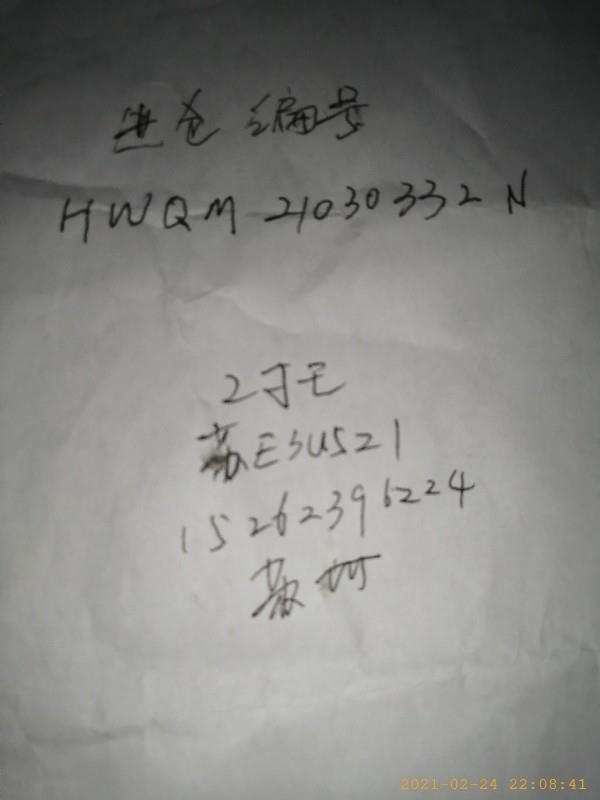 进仓编号
HWQM 21030332N
2寸毛
苏E3U521
15262396224
苏州
2021-02-24 22:08:41